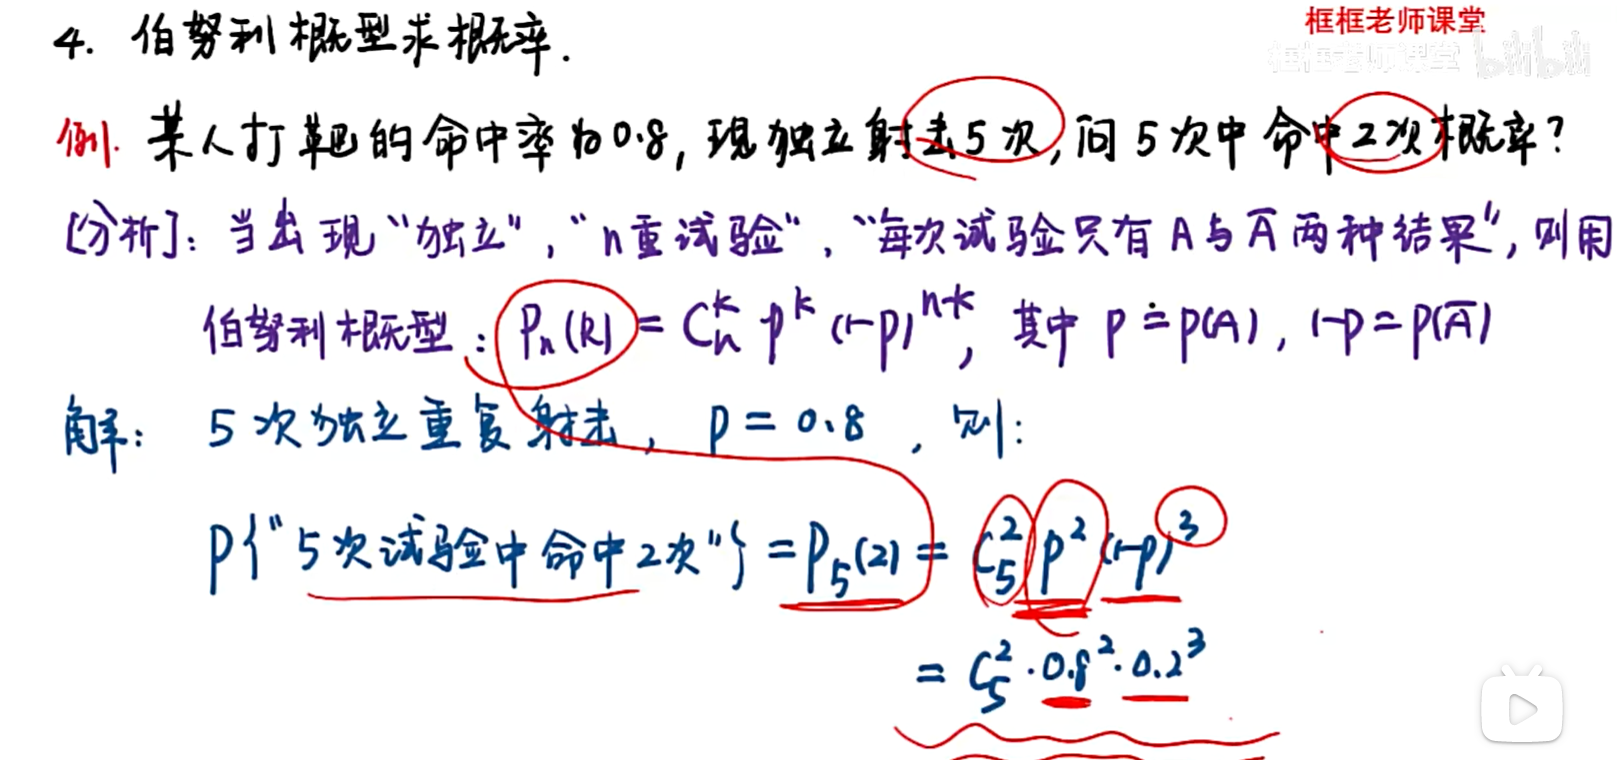 框框老师课堂
框框老师课堂 bilibili
4. 伯努利概型求概率.
例. 某人打靶的命中率为0.8, 现独立射击5次, 问5次中命中2次概率?
[分析]: 当出现“独立”, “n重试验”, “每次试验只有A与A̅两种结果”, 则用
伯努利概型: Pₙ(k) = Cₙᵏ pᵏ (1-p)ⁿ⁻ᵏ, 其中 p ≐ p(A), 1-p = p(A̅)
解: 5次独立重复射击, p = 0.8, 则:
P{“5次试验中命中2次”} = P₅(2) = C₅² p² (1-p)³
= C₅² · 0.8² · 0.2³